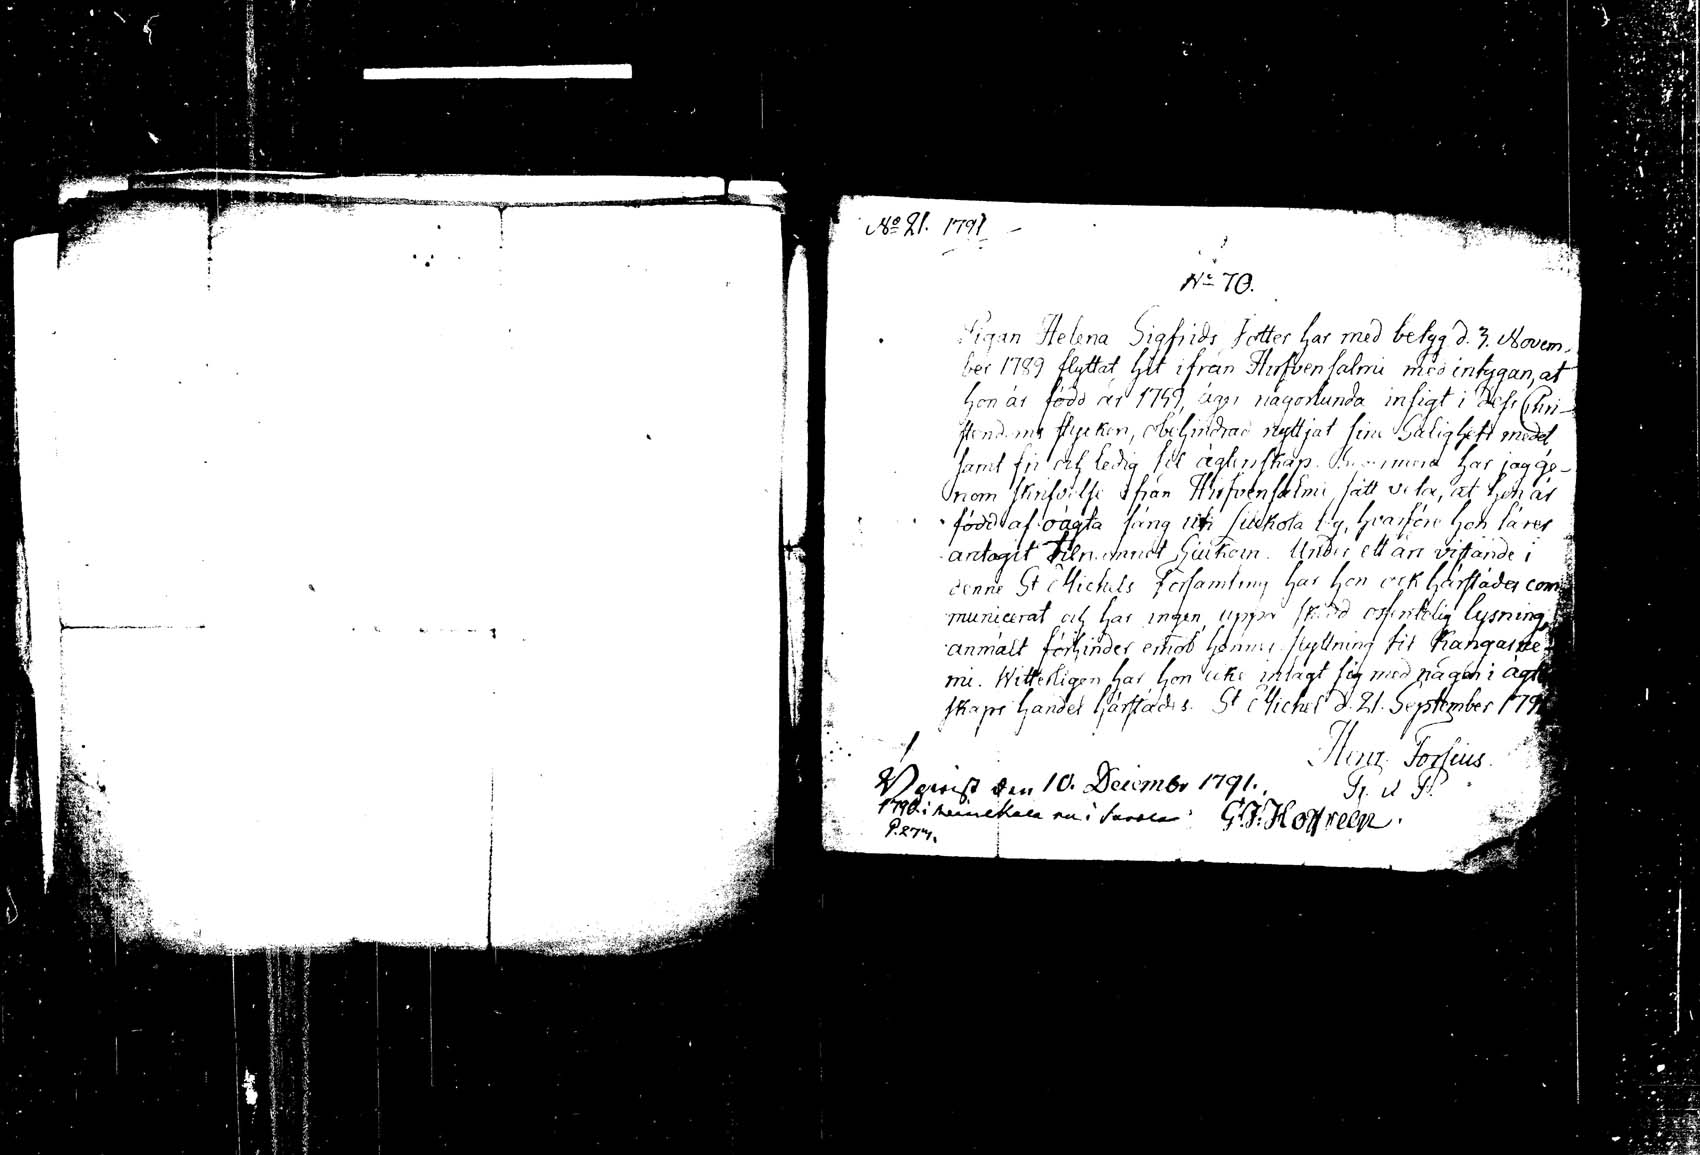 No 21. 1791
No 70.
Pigan Helena Sigfrids Dotter har med betyg d. 3. Novem-
ber 1789 flyttat hit ifrån Hirfvensalmi med intygan, at
hon är född år 1759, äger någorlunda insigt i dess Chri-
stendoms stycken, obehindrad nyttjat sine Salighets medel
samt fri och ledig til ägtenskap. har jag ge-
nom skrifvelse ifrån Hirfvensalmi fått veta, at hon är
född af oägta säng uti by, hvarföre hon lärer
antagit Under ett års vistande i
denne St Michels Församling har hon ock härstädes com
municerat och har ingen, uppå skedd offentelig lysning,
anmält förhinder emot hennes flyttning til Kangasnie-
mi. Witterligen har hon icke inlagt sig med någon i ägte
skaps handel härstädes. St Michel d. 21. September 1791
Henr. Forsius.
den 10. Decembr 1791.
1790. i nu i
P. 274.